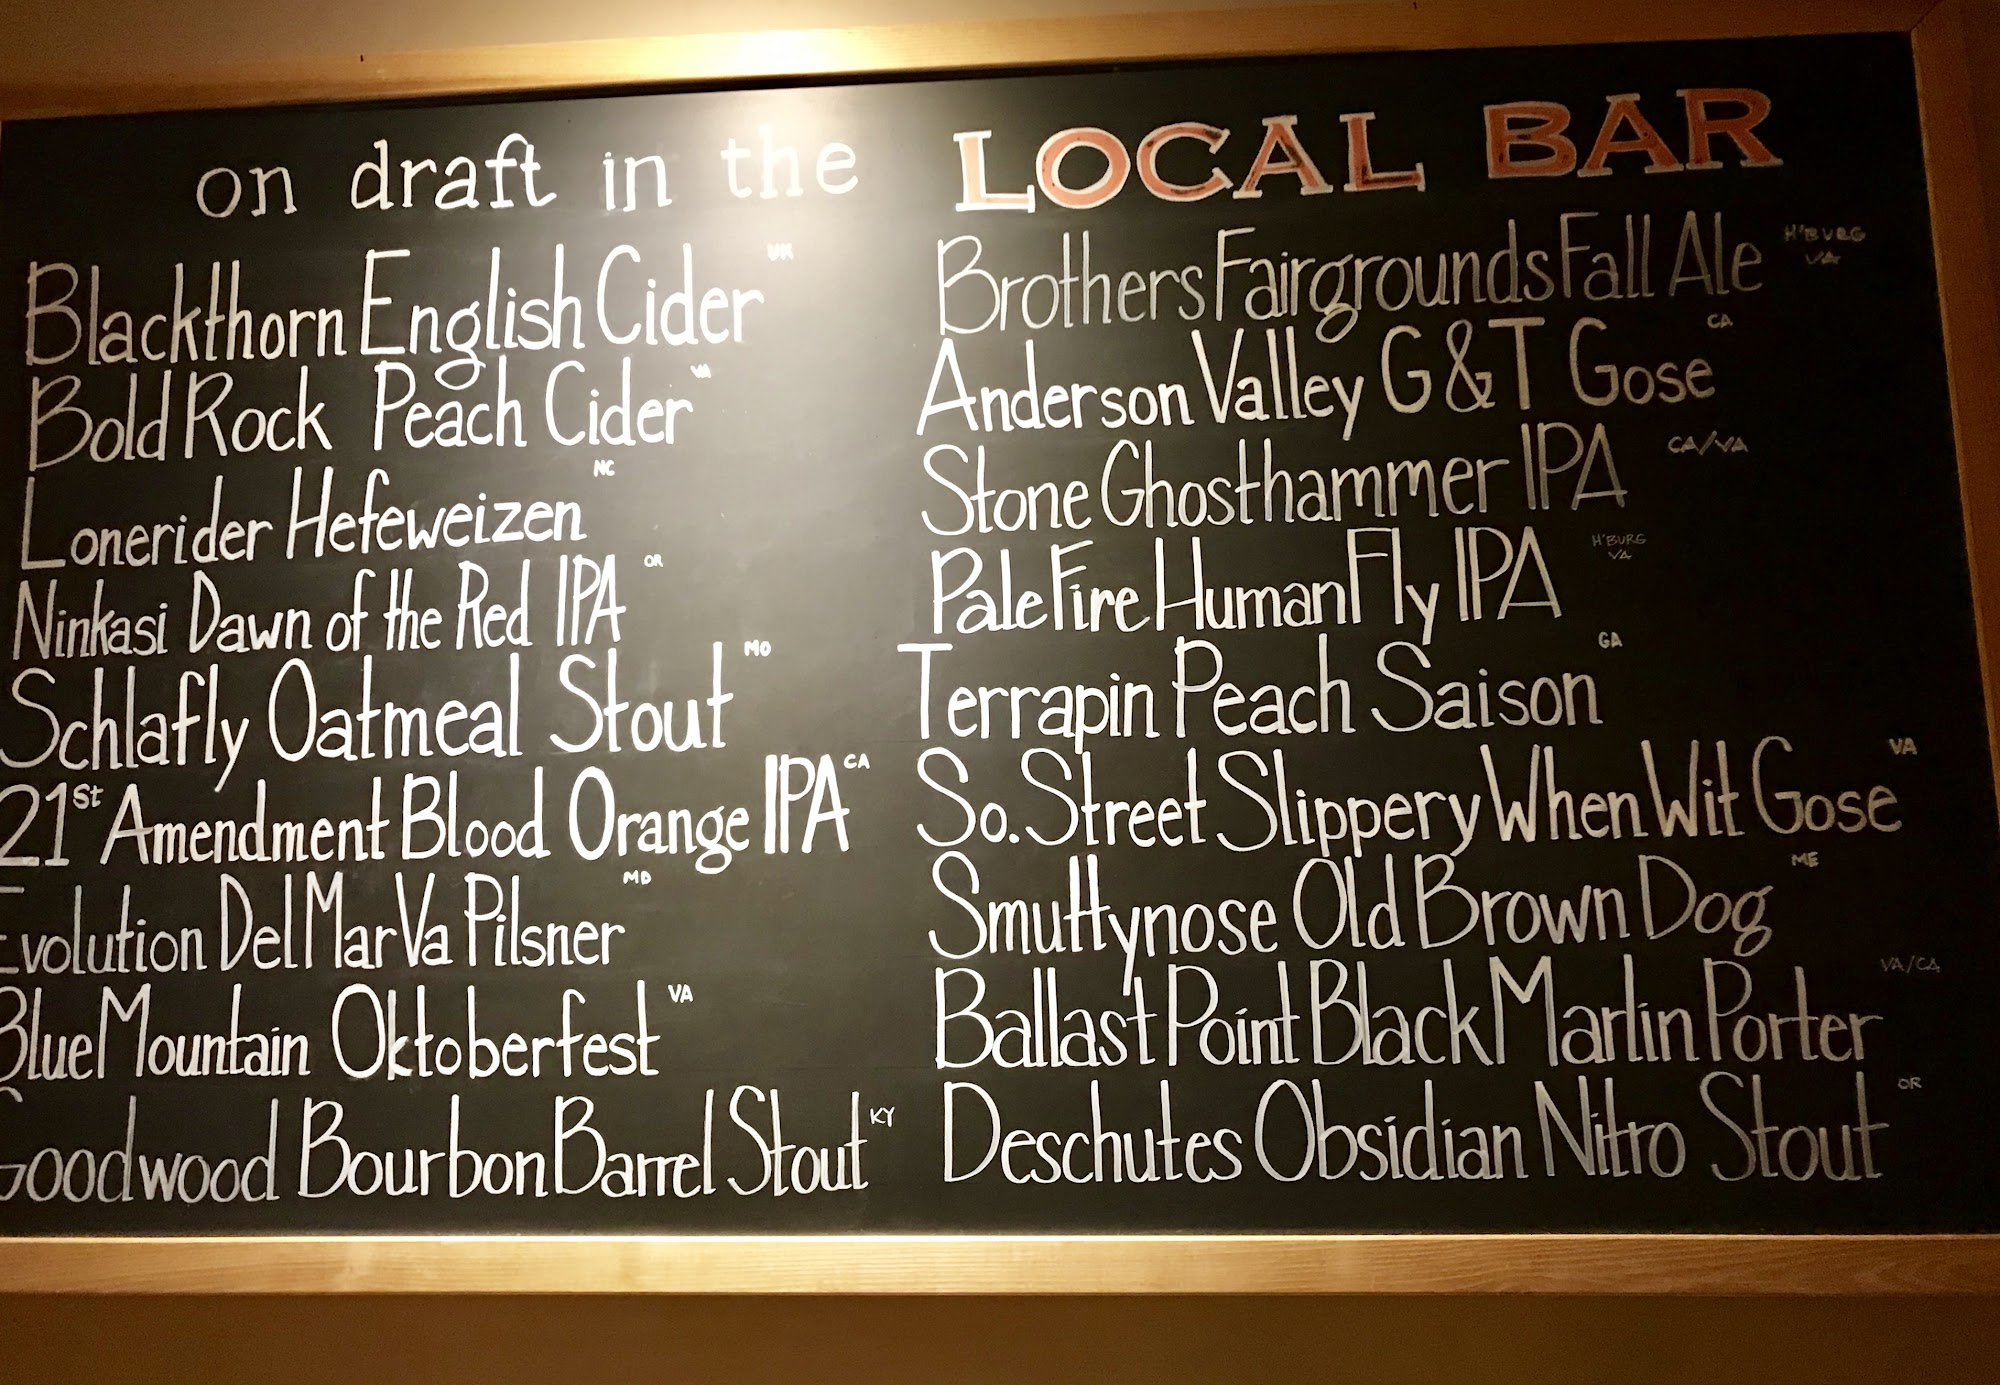 on draft in the LOCAL BAR
Blackthorn English Cider UK
Bold Rock Peach Cider VA
Lonerider Hefeweizen NC
Ninkasi Dawn of the Red IPA OR
Schlafly Oatmeal Stout MO
21st Amendment Blood Orange IPA CA
Evolution DelMarVa Pilsner MD
Blue Mountain Oktoberfest VA
Goodwood Bourbon Barrel Stout KY
Brothers Fairgrounds Fall Ale H'BURG VA
Anderson Valley G & T Gose CA
Stone Ghosthammer IPA CA/VA
Pale Fire Human Fly IPA H'BURG VA
Terrapin Peach Saison GA
So. Street Slippery When Wit Gose VA
Smuttynose Old Brown Dog ME
Ballast Point Black Marlin Porter VA/CA
Deschutes Obsidian Nitro Stout OR